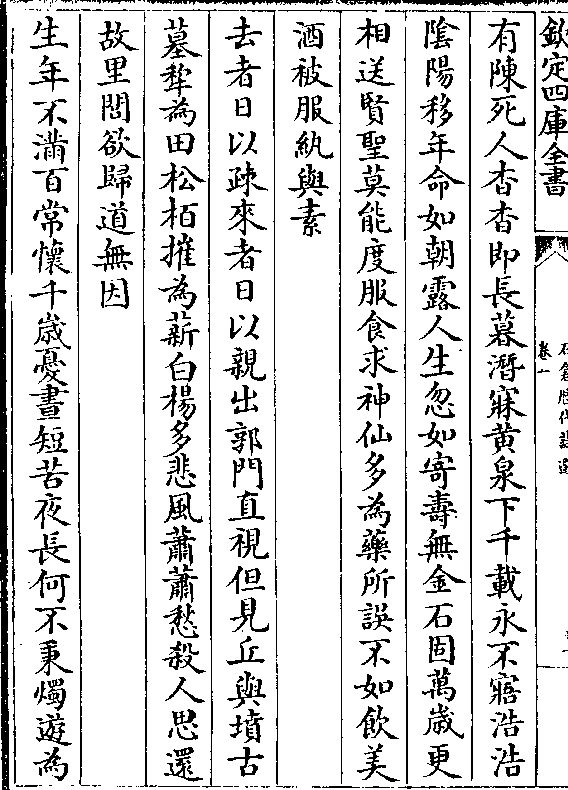 欽定四庫全書
卷一
石倉歷代詩選
有陳死人杳杳即長暮潛寐黃泉下千載永不寤浩浩
隂陽移年命如朝露人生忽如寄壽無金石固萬歲更
相送賢聖莫能度服食求神仙多為藥所誤不如飲美
酒被服紈與素
去者日以疎來者日以親出郭門直視但見丘與墳古
墓犂為田松栢摧為薪白楊多悲風蕭蕭愁殺人思還
故里閭欲歸道無因
生年不滿百常懷千歲憂晝短苦夜長何不秉燭遊為